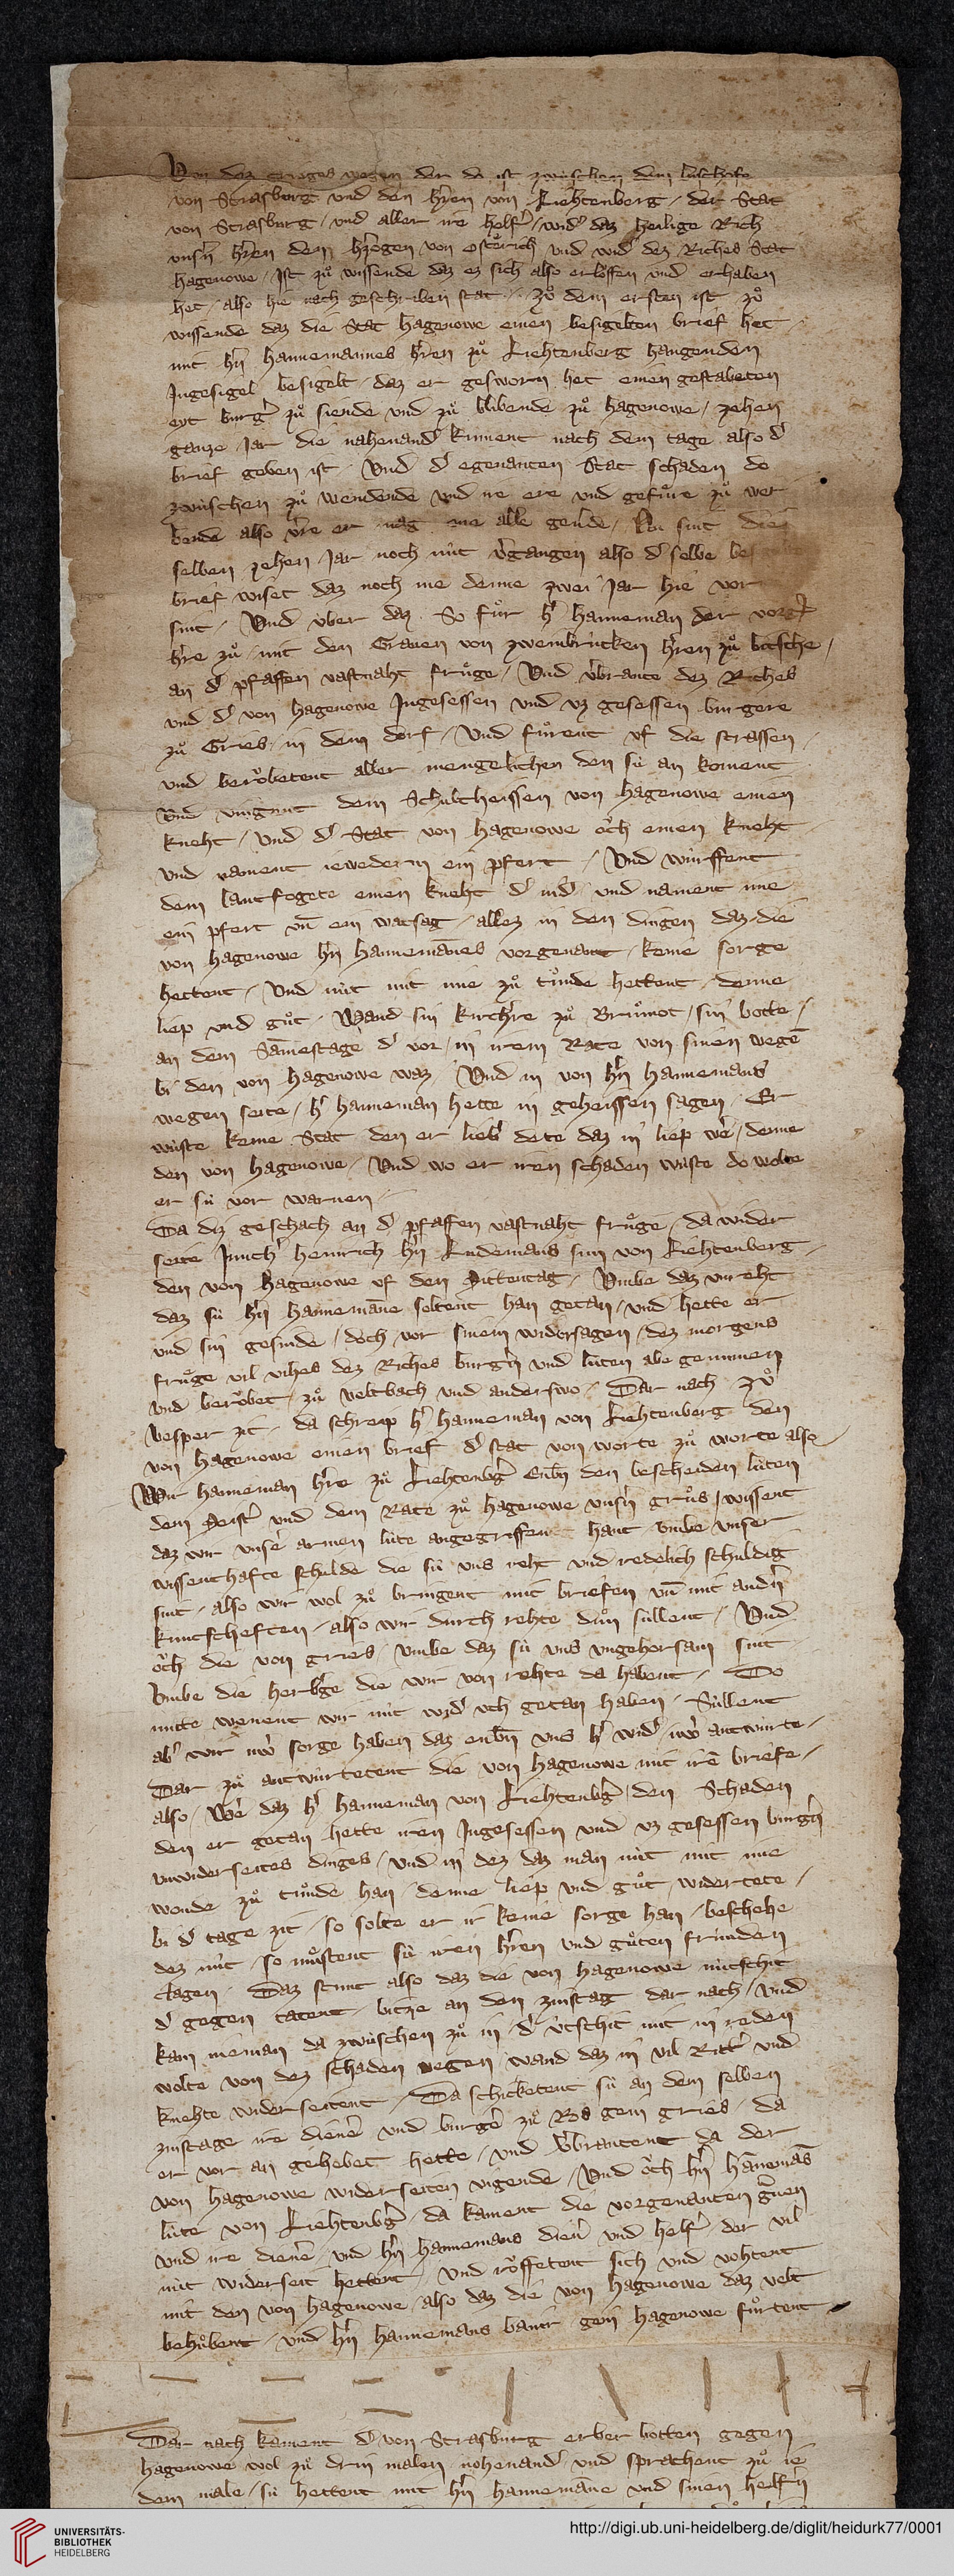 Von dez krieges wegen der do ist zwúschen dem bischofe
von Strasburg vnd den hʼren von Liehtenberg / der Stat
von Strasburg / vnd aller ire helfʼ / widʼ daz heilige Rich
vnsʼn hʼren den hʼzogen von ostʼrich vnd widʼ dez Riches Stat
hagenowe / Ist zuͦ wissende daz ez sich also erloffen vnd erhaben
het / also hie nach geschriben stat / Zuͦ dem ersten ist zuͦ
wissende daz die Stat hagenowe einen besigelten brief het
mit hʼn hannemannes hʼren zuͦ Liehtenberg hangenden
Ingesigel besigelt / daz er gesworn het einen gestabeten
eyt burgʼ zuͦ siende vnd zuͦ blibende zuͦ hagenowe / zehen
ganze Jar die nahenandʼ kument nach dem tage also dʼ
brief geben ist / Vnd dʼ egenanten Stat schaden do
zwúschen zuͦ wendende vnd ire ere vnd gefuͦre zuͦ wer
bende also vʼre er mag ane alle geuʼde / Nu sint die
selben zehen Jar noch nút vʼgangen also dʼ selbe be
brief wiset daz noch me denne zwei Jar hie vor
sint / Vnd vber daz So fuͦr hʼ hanneman der vorgʼ
hʼre zuͦ / mit den Grauen von zweinbrúcken hʼren zuͦ bitsche /
an dʼ pfaffen vastnaht fruͦge / Vnd vʼbrante dez Riches
vnd dʼ von hagenowe Ingesessen vnd vz gesessen burgere
zuͦ Gries / in dem dorf / Vnd fuͦrent vf die strassen /
vnd beroͮbetent aller mengelichen den sú an koment
Vnd viengent dem Schultheissen von hagenowe einen
kneht / Vnd dʼ Stat von hagenowe oͮch einen kneht
vnd nament iewederm ein pfert / Vnd wurffent
dem lantfogete einen kneht dʼ nidʼ vnd nament ime
ein pfert vn̄ ein watsag / allez in den dingen daz die
von hagenowe hʼn hannemānes vorgenant / keine sorge
hettent / Vnd nút mit ime zuͦ tuͦnde hettent / denne
liep vnd guͦt / Wand sin kirchʼre zuͦ Brúmot / sin botte /
an dem Samestage dʼ vor / in irem Rate von sinen wegē
bi den von hagenowe waz / Vnd in von hʼn hannemans
wegen seite / hʼ hanneman hette in geheissen sagen / Er
wúste keine Stat den er liebʼ dete daz in liep wer / denne
den von hagenowe / Vnd wo er iren schaden wúste do wolte
er sú vor warnen /
Da diz geschach an dʼ pfaffen vastnaht fruͦge / da wider
seite Junchʼ heinrich hʼn Ludemans sun von Liehtenberg /
den von hagenowe vf den Mittentag / Vmbe daz vnreht
daz sú hʼn hannemāne soltent han getan / vnd hette er
vnd sin gesinde / doch vor sinem widersagen / dez morgens
fruͦge vil vihes dez Riches burgʼn vnd lúten abe genumen
vnd beroͮbet / zuͦ veltbach vnd anderswo / Dar nach zuͦ
vesper zit / da schreip hʼ hanneman von Liehtenberg den
von hagenowe einen brief dʼ stat von worte zuͦ worte also /
Wir hanneman hʼre zuͦ Liehtenbgʼ Enbʼn den bescheiden lúten
dem Meistʼ vnd dem Rate zuͦ hagenowe vnsʼn gruͦs / wissent
daz wir vnsʼe armen lúte angegriffen hant vmbe vnser
wissenthafte schulde die sú vns reht vnd redelich schuldig
sint / also wir wol zuͦ bringent mit briefen vn̄ mit andʼn
kuntscheften / also wir durch rehte duͦn súllent / Vnd
oͮch die von gries / vmbe daz sú vns vngehorsam sint
Vmbe die herbʼge die wir von rehte da habent / Do
mitte wenent wir nút widʼ vch getan haben / Súllent
abʼ wir uwʼ sorge haben daz enbʼn vns hʼ widʼ uwʼ antwurte /
Dar zuͦ antwurtetent die von hagenowe mit ire briefe /
also / Wer daz hʼ hanneman von Liehtenbgʼ / den Schaden
den er getan hette iren Ingesessen vnd vz gesessen burgʼn
vnwiderseites dinges / vnd in dez daz man nút mit ime
wonde zuͦ tuͦnde han / denne liep vnd guͦt / widertete /
bi dʼ tage zit / so solte er ir keine sorge han / beschehe
dez nút / so muͦstent sú iren hʼren vnd guͦten frúnden
clagen / Daz stunt also daz die von hagenowe nútschit
dʼ gegen tatent / bitze an den zinstag dar nach / vnd
kam nieman da zwúschen zuͦ in / dʼ útschit mit in reden
wolte von dez schaden wegen / wand daz in vil Rittʼ vnd
knehte widerseitent / Da schicketent sú an dem selben
zinstage ire dienʼe vnd burgʼe zuͦ Ros gein gries / da
er vor an gehebet hette / vnd vʼbrantent da der
von hagenowe widerseiten vigende / Vnd oͮch hʼn hannemās
lúte von Liehtenbgʼ / da kament die vorgenanten gʼuen
vnd ire dienʼe / vnd hʼn hannemans dienʼ vnd helfʼ der vil
nút widerseit hettent / vnd roͮffetent sich vnd vohtent
mit den von hagenowe / also daz die von hagenowe daz velt
behuͦbent / vnd hʼn hannemans banir gein hagenowe fuͦrtent
Dar nach kament dʼ von Strasburg erber botten gegen
hagenowe wol zuͦ drin malen nohenandʼ vnd sprachent zuͦ ie
dem male / sú hettent mit hʼn hannemāne vnd sinen helfʼn
UNIVERSITÄTS-
BIBLIOTHEK
HEIDELBERG
http://digi.ub.uni-heidelberg.de/diglit/heidurk77/0001